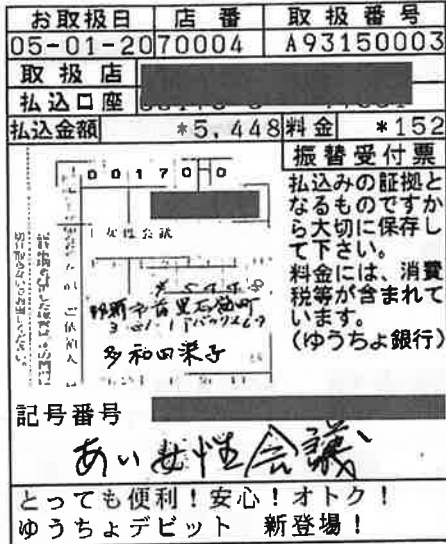 お取扱日 店番 取扱番号
05-01-20 70004 A93150003
取扱店
払込口座
払込金額 *5,448 料金 *152
振替受付票
払込みの証拠と
なるものですか
ら大切に保存し
て下さい。
料金には、消費
税等が含まれて
います。
(ゆうちょ銀行)
00170 0
女性会議
那覇市首里石嶺町
多和田栄子
記号番号
あい女性会議
とっても便利!安心!オトク!
ゆうちょデビット 新登場!